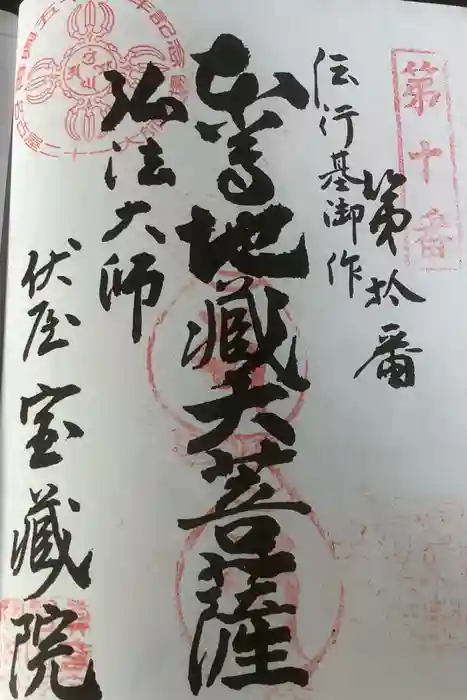 第十番
第拾番
伝行基御作
本尊地藏大菩薩
弘法大師
伏屋 宝藏院